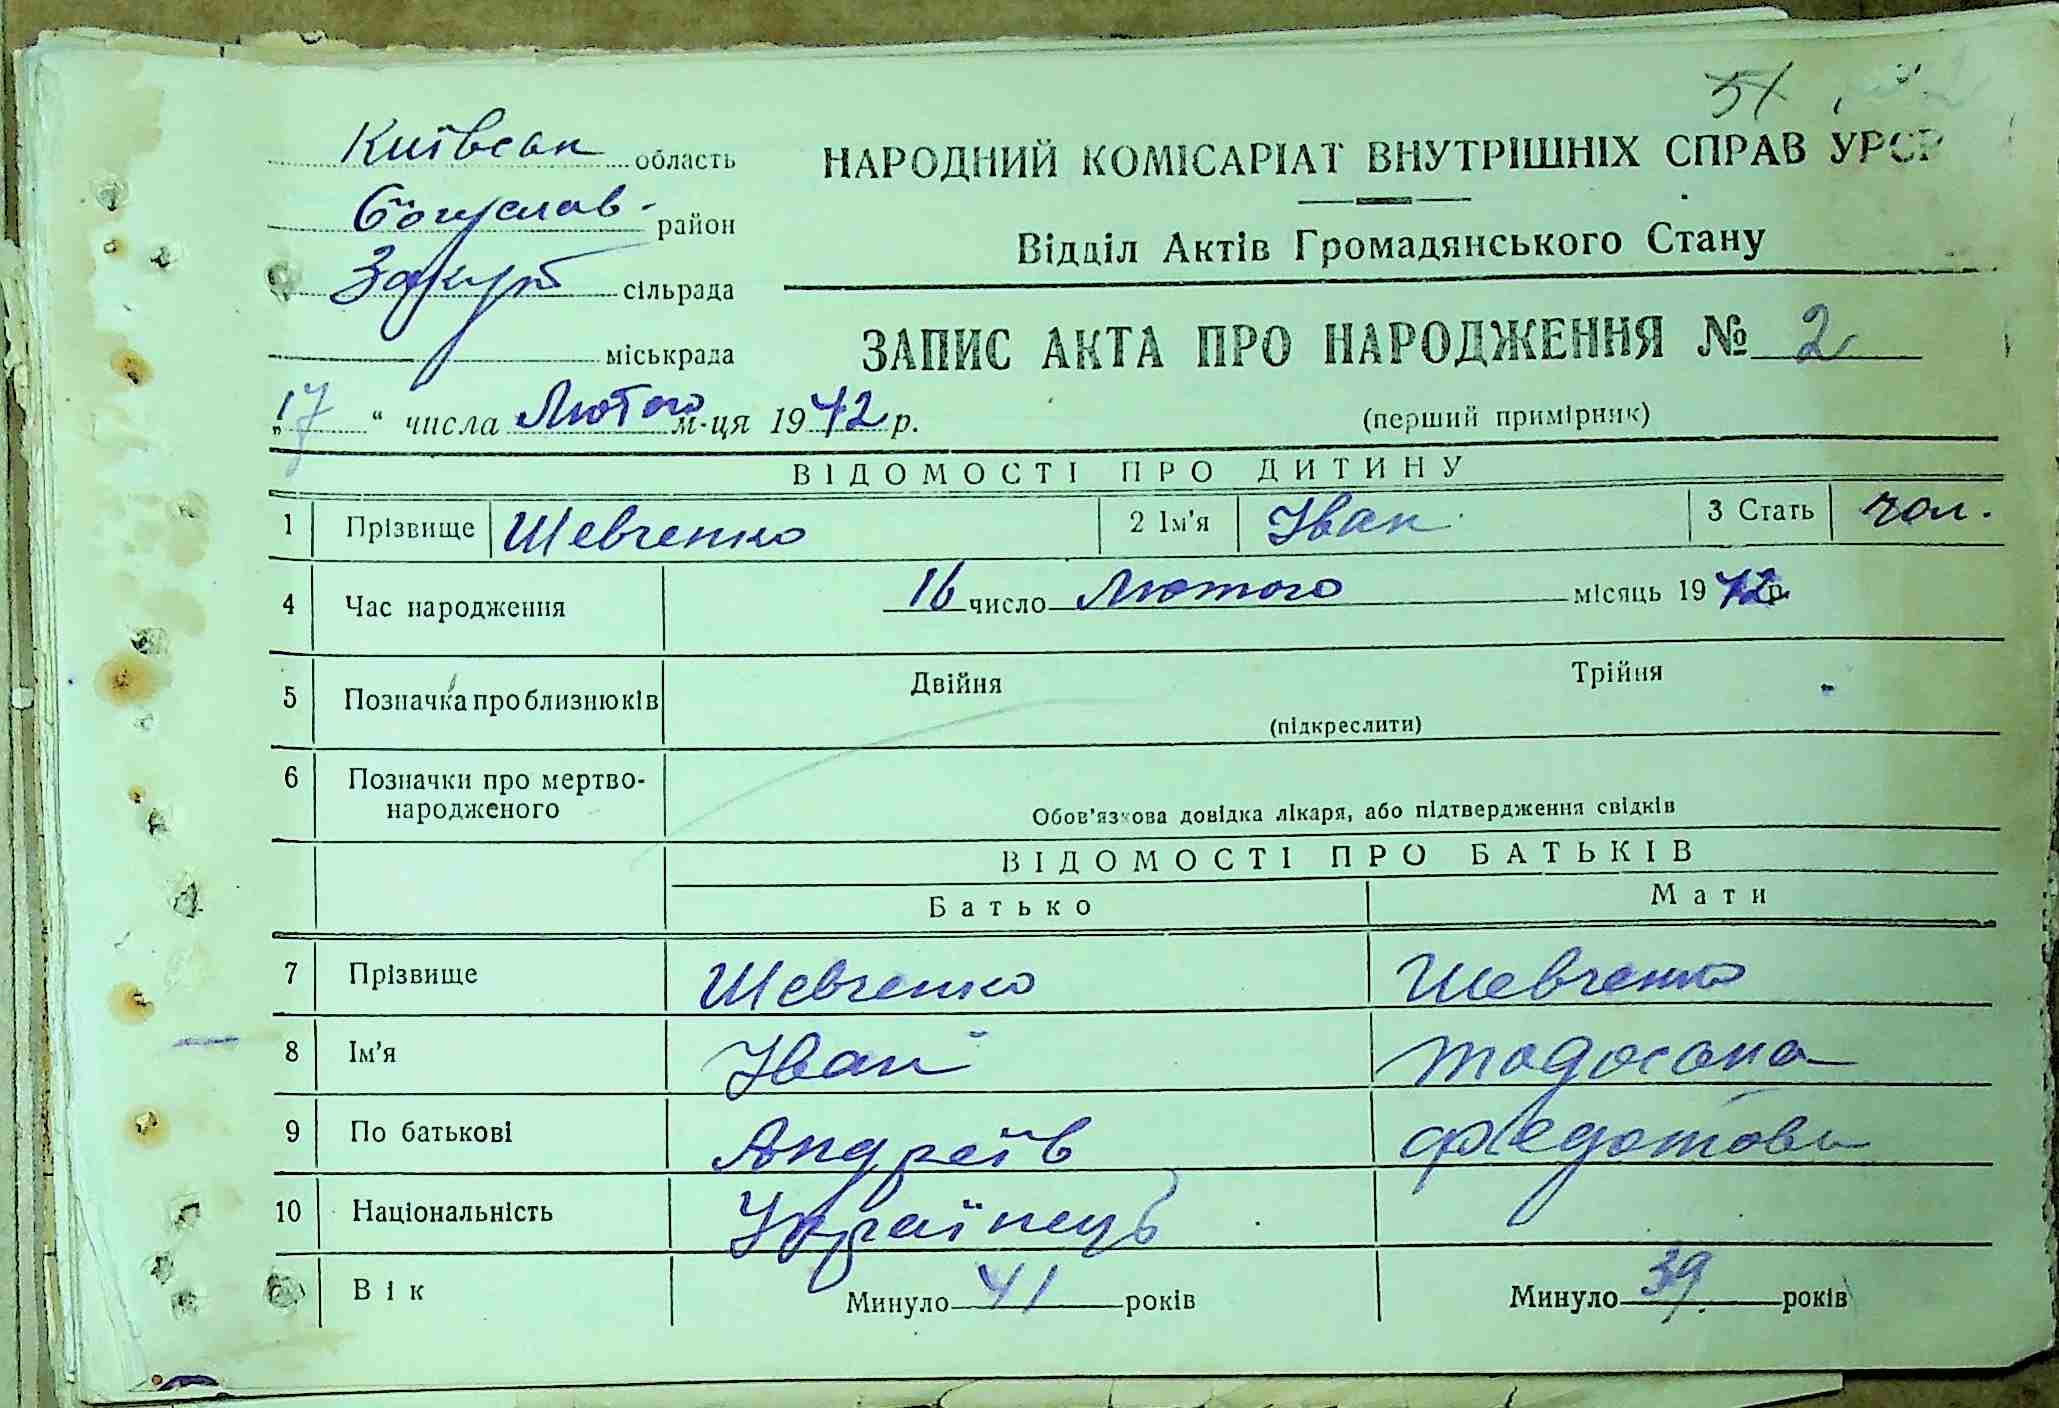 51
Київськ область
НАРОДНИЙ КОМІСАРІАТ ВНУТРІШНІХ СПРАВ УРСР
Богуслав. район
Відділ Актів Громадянського Стану
сільрада
міськрада
ЗАПИС АКТА ПРО НАРОДЖЕННЯ № 2
„17“ числа Лютого м-ця 1942 р.
(перший примірник)
ВІДОМОСТІ ПРО ДИТИНУ
1 Прізвище Шевченко 2 Ім'я Іван 3 Стать чол.
4 Час народження 16 число Лютого місяць 1942 р.
5 Позначка про близнюків Двійня Трійня
(підкреслити)
6 Позначки про мертво-
народженого
Обов'язкова довідка лікаря, або підтвердження свідків
ВІДОМОСТІ ПРО БАТЬКІВ
Батько Мати
7 Прізвище Шевченко Шевченко
8 Ім'я Іван
9 По батькові Андреїв Федотови
10 Національність Українець
Вік Минуло 41 років Минуло 39 років